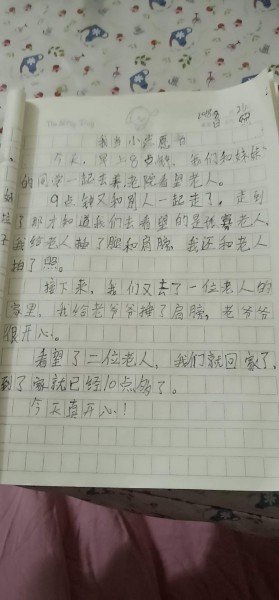 我当小志愿者
今天，早上8点钟，我们和妹妹
的同学一起去养老院看望老人。
9点钟又和别人一起走了，走到
了那才知道我们去看望的是张喜老人。
我给老人捶了腿和肩膀，我还和老人
拍了照。
接下来，我们又去了一位老人的
家里，我给老爷爷捶了肩膀，老爷爷
很开心。
看望了二位老人，我们就回家了，
到了家就已经10点多了。
今天真开心！